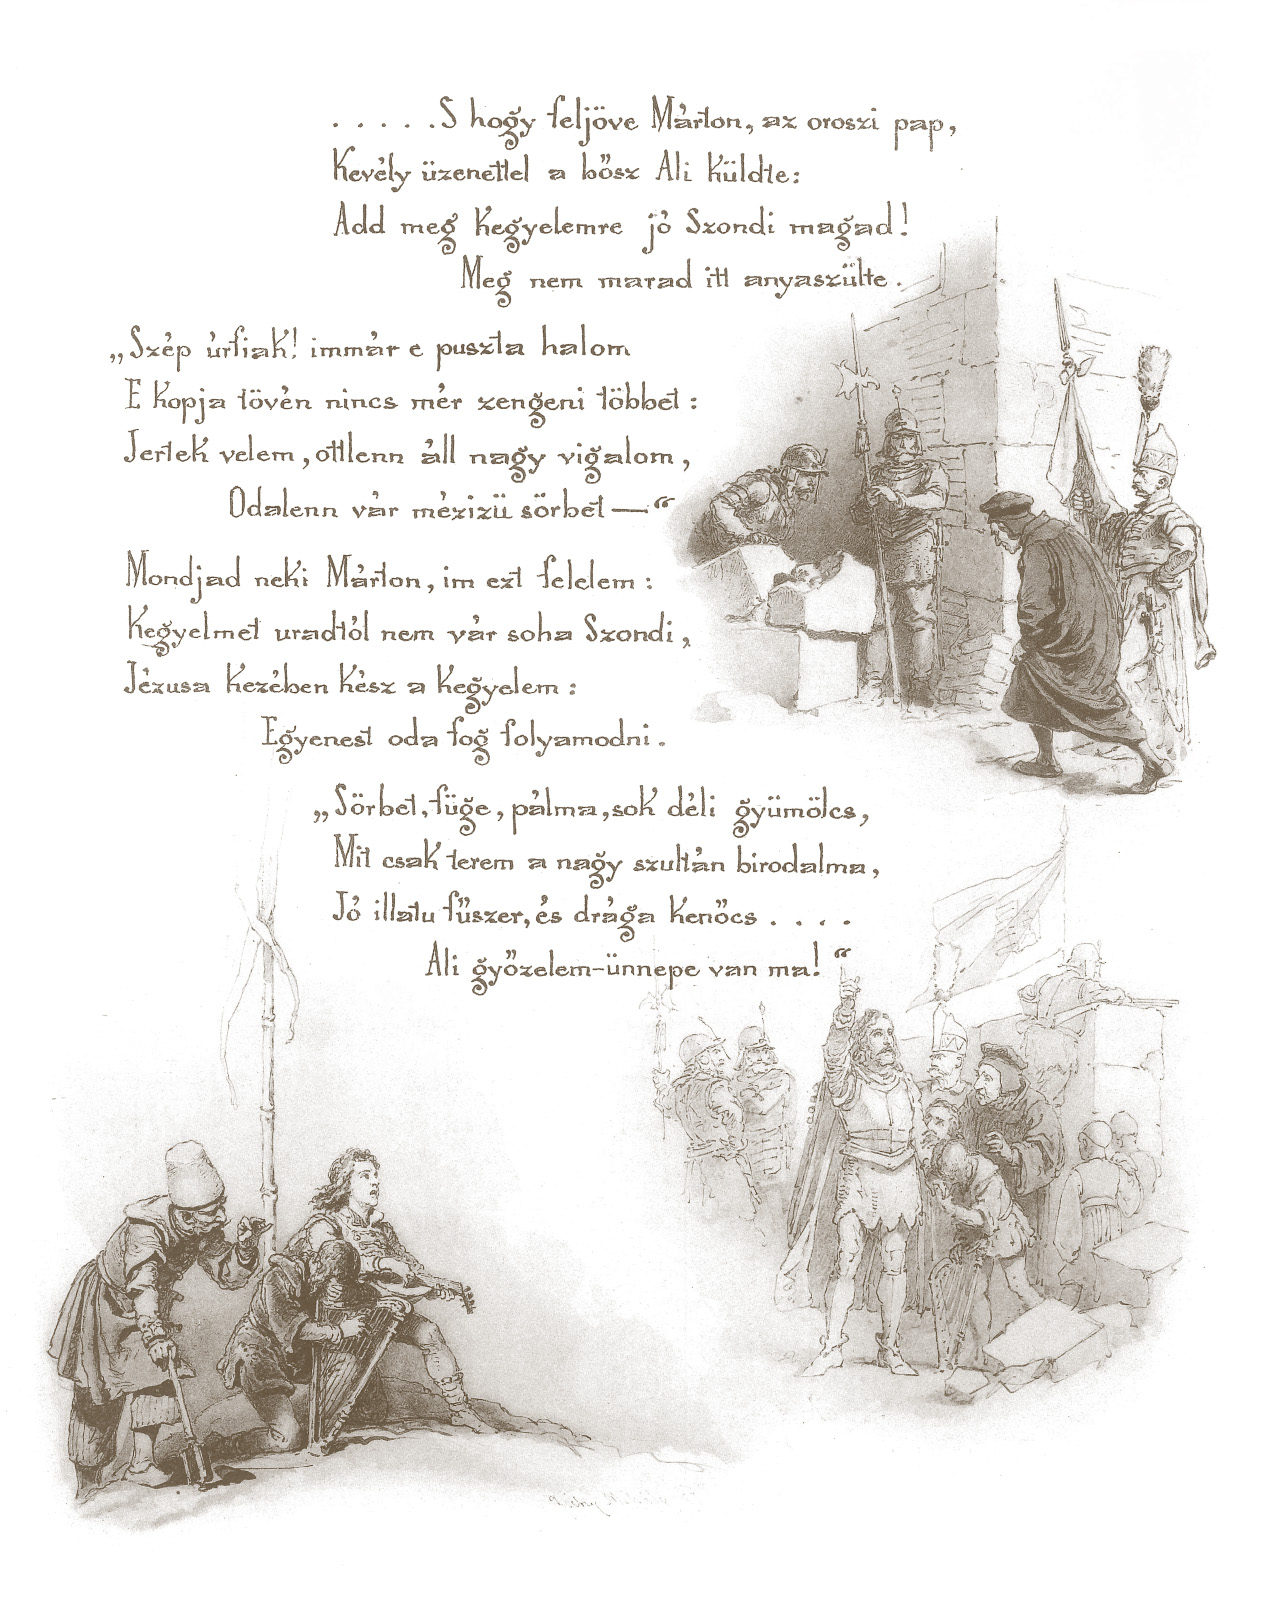 . . . . . S hogy feljöve Márton, az oroszi pap,
Kevély üzenettel a bősz Ali küldte:
Add meg kegyelemre jó Szondi magad!
Meg nem marad itt anyaszülte.
„Szép úrfiak! immár e puszta halom
E kopja tövén nincs mér zengeni többet:
Jertek velem, ottlenn áll nagy vigalom,
Odalenn vár mézizü sörbet —“
Mondjad neki Márton, im ezt felelem:
Kegyelmet uradtól nem vár soha Szondi,
Jézusa kezében kész a kegyelem:
Egyenest oda fog folyamodni.
„Sörbet, füge, pálma, sok déli gyümölcs,
Mit csak terem a nagy szultán birodalma,
Jó illatu fűszer, és drága kenőcs . . . .
Ali győzelem-ünnepe van ma!“